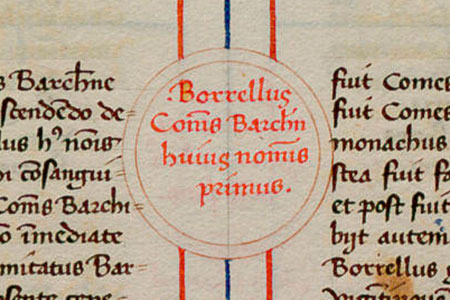 s Barchne
stendēdo de=
lus hꝰ nōis
hi cōsangui=
Coms Barchi=
o īmediate
mitatus Bar=
.Borrellus
Coms Barchn
huius nomīs
primus.
fuit Comes
fuit Comes
monachus
stea fuit fa
et post fuit
bijt autem
Borrellus